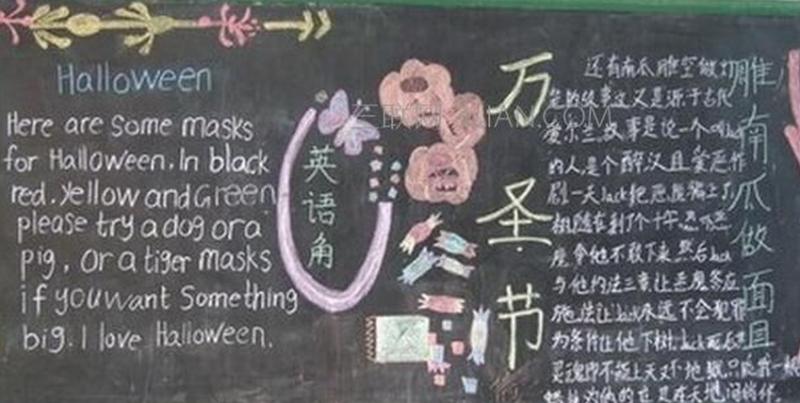 Halloween
Here are some masks
for Halloween. In black
red. yellow and Green
please try a dog or a
pig, or a tiger masks
if you want Something
big. I love Halloween.
英语角
万圣节
还有南瓜雕空做灯
的故事这又是源于古代
爱尔兰。故事是说一个叫
的人,是个醉汉且爱恶作
剧一天Jack把恶魔骗上了
树随在
魔拿他不敢下来,然后Jack
与他约法三章让恶魔答应
施法让Jack永远不会犯罪
为条件让他下树。Jack死后
灵魂即不能上天又不地狱,只能靠一
雕南瓜做面具